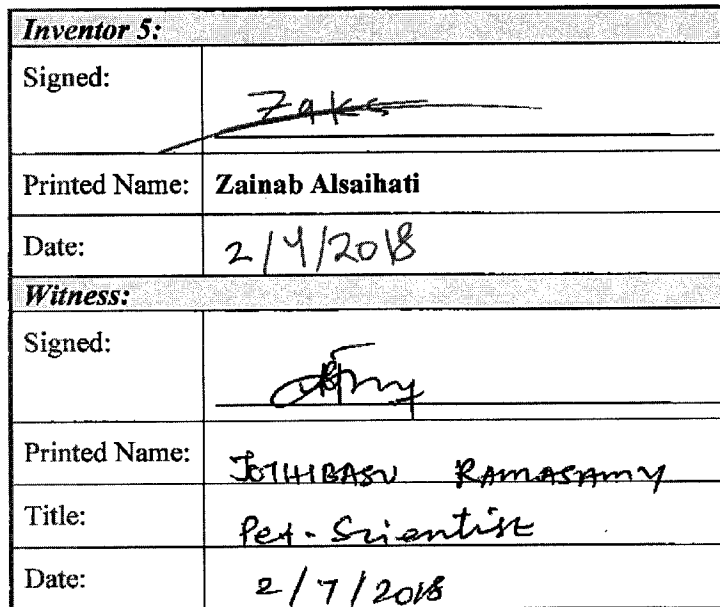 Inventor 5:
Signed:
Printed Name: Zainab Alsaihati
Date: 2/4/2018
Witness:
Signed:
Printed Name: JOTHIBASU RAMASAMY
Title: Pet. Scientist
Date: 2/7/2018